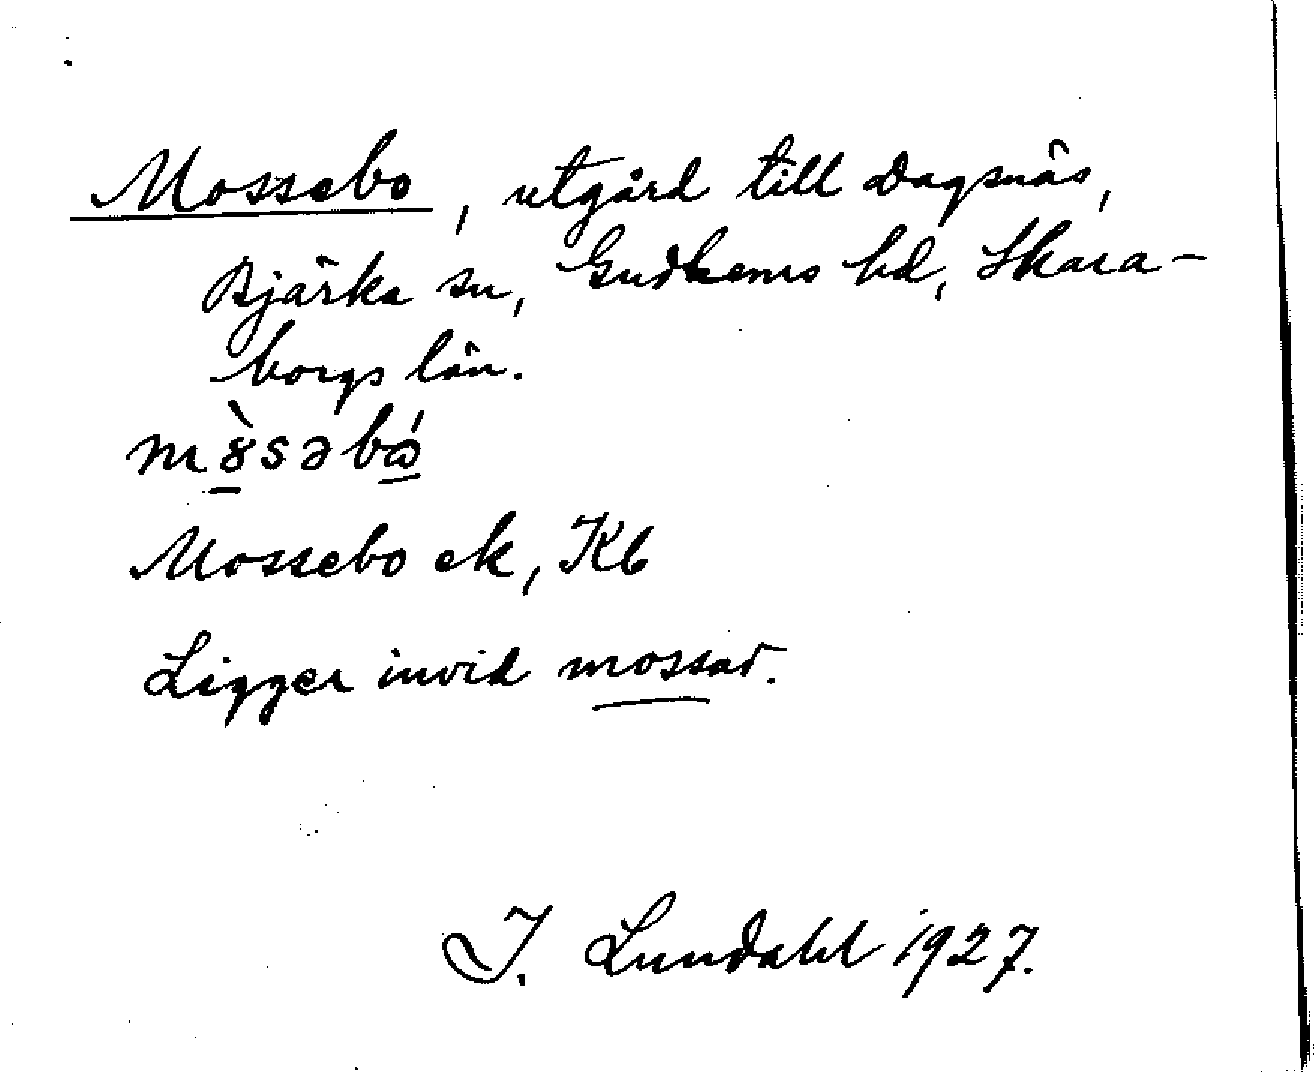 Mossebo, utgård till Dagsnäs,
Bjärka sn, Gudhems hd, Skara-
borgs län.
m8̱̀səbώ̱
Mossebo ek, Kb
Ligger invid mossar.
I. Lundahl 1927.